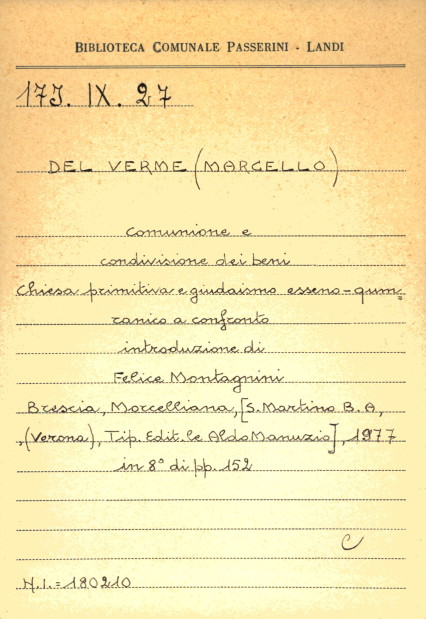 BIBLIOTECA COMUNALE PASSERINI - LANDI
17J. IX. 27
DEL VERME (MARCELLO)
Comunione e
condivisione dei beni
Chiesa primitiva e giudaismo esseno-qum=
ranico a confronto
introduzione di
Felice Montagnini
Brescia, Morcelliana, [S. Martino B. A,
,(Verona), Tip. Edit.le Aldo Manuzio], 1977
in 8° di pp. 152
C
N.I. = 180210